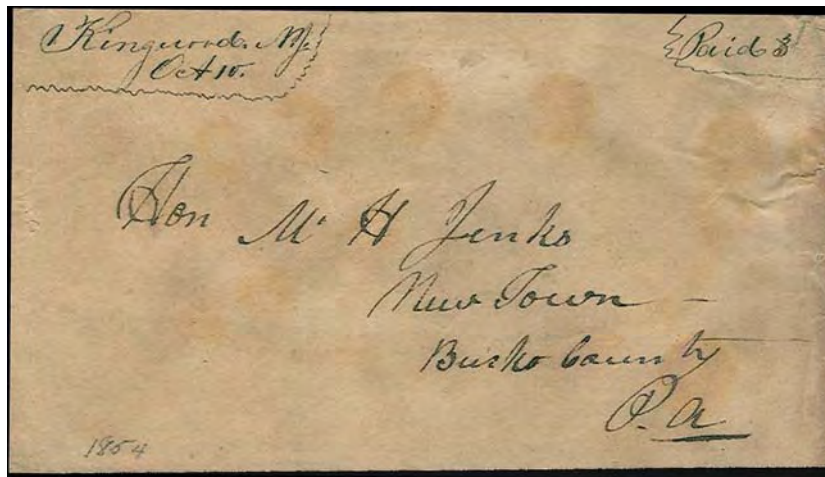 Kingwood. NJ.
Oct 10.
Paid 3
Hon M. H Jenks
New Town -
Bucks County
P.a
1854